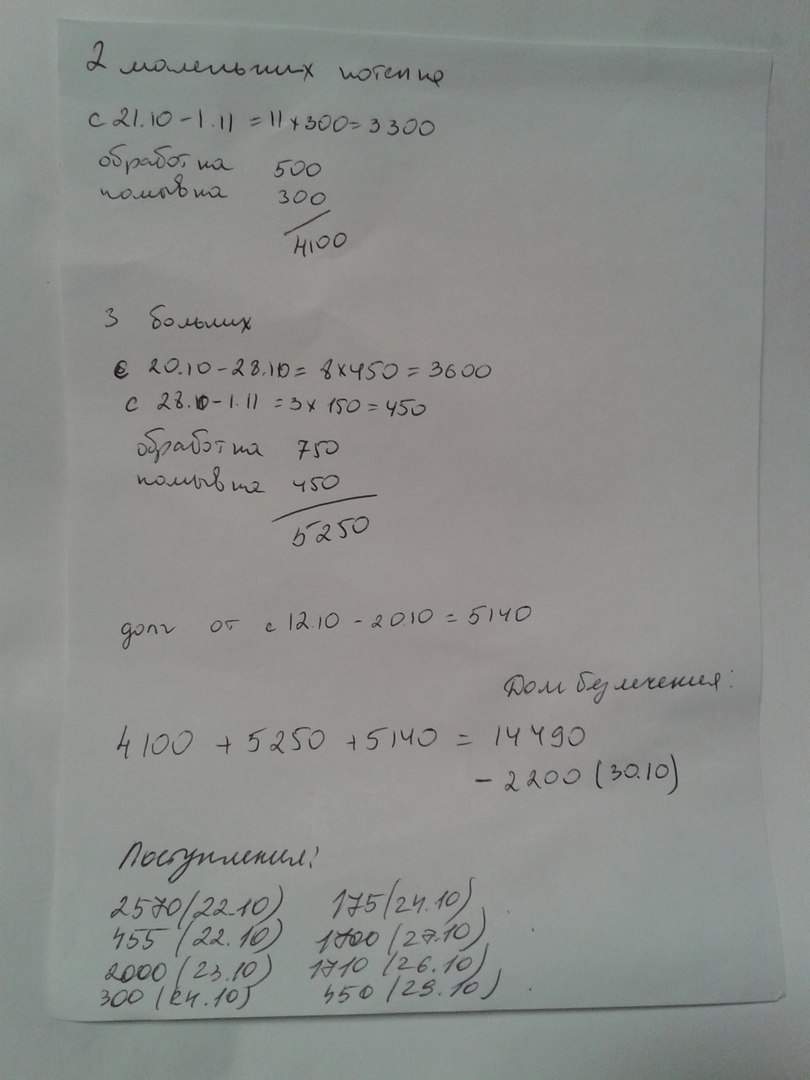 2 маленьких котенка
с 21.10 - 1.11 = 11 x 300 = 3300
обработка 500
помывка 300
4100
3 больших
с 20.10 - 28.10 = 8 x 450 = 3600
с 28.10 - 1.11 = 3 x 150 = 450
обработка 750
помывка 450
5250
долг от с 12.10 - 20.10 = 5140
Дом без лечения:
4100 + 5250 + 5140 = 14490
- 2200 (30.10)
Поступления:
2570 (22.10) 175 (24.10)
455 (22.10) 1700 (27.10)
2000 (23.10) 1710 (26.10)
300 (24.10) 450 (29.10)